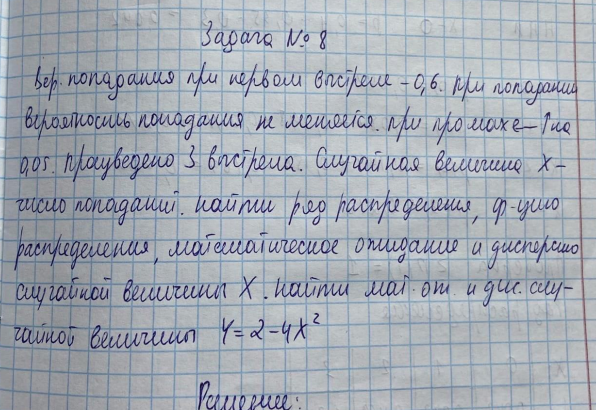 Задача № 8
Вер. попадания при первом выстреле - 0,6. При попадании
вероятность попадания не меняется. При промахе - ↑ на
0,05. Произведено 3 выстрела. Случайная величина X -
число попаданий. Найти ряд распределения, ф-цию
распределения, математическое ожидание и дисперсию
случайной величины X. Найти мат. ож. и дис. слу-
чайной величины Y = 2 - 4X²
Решение: